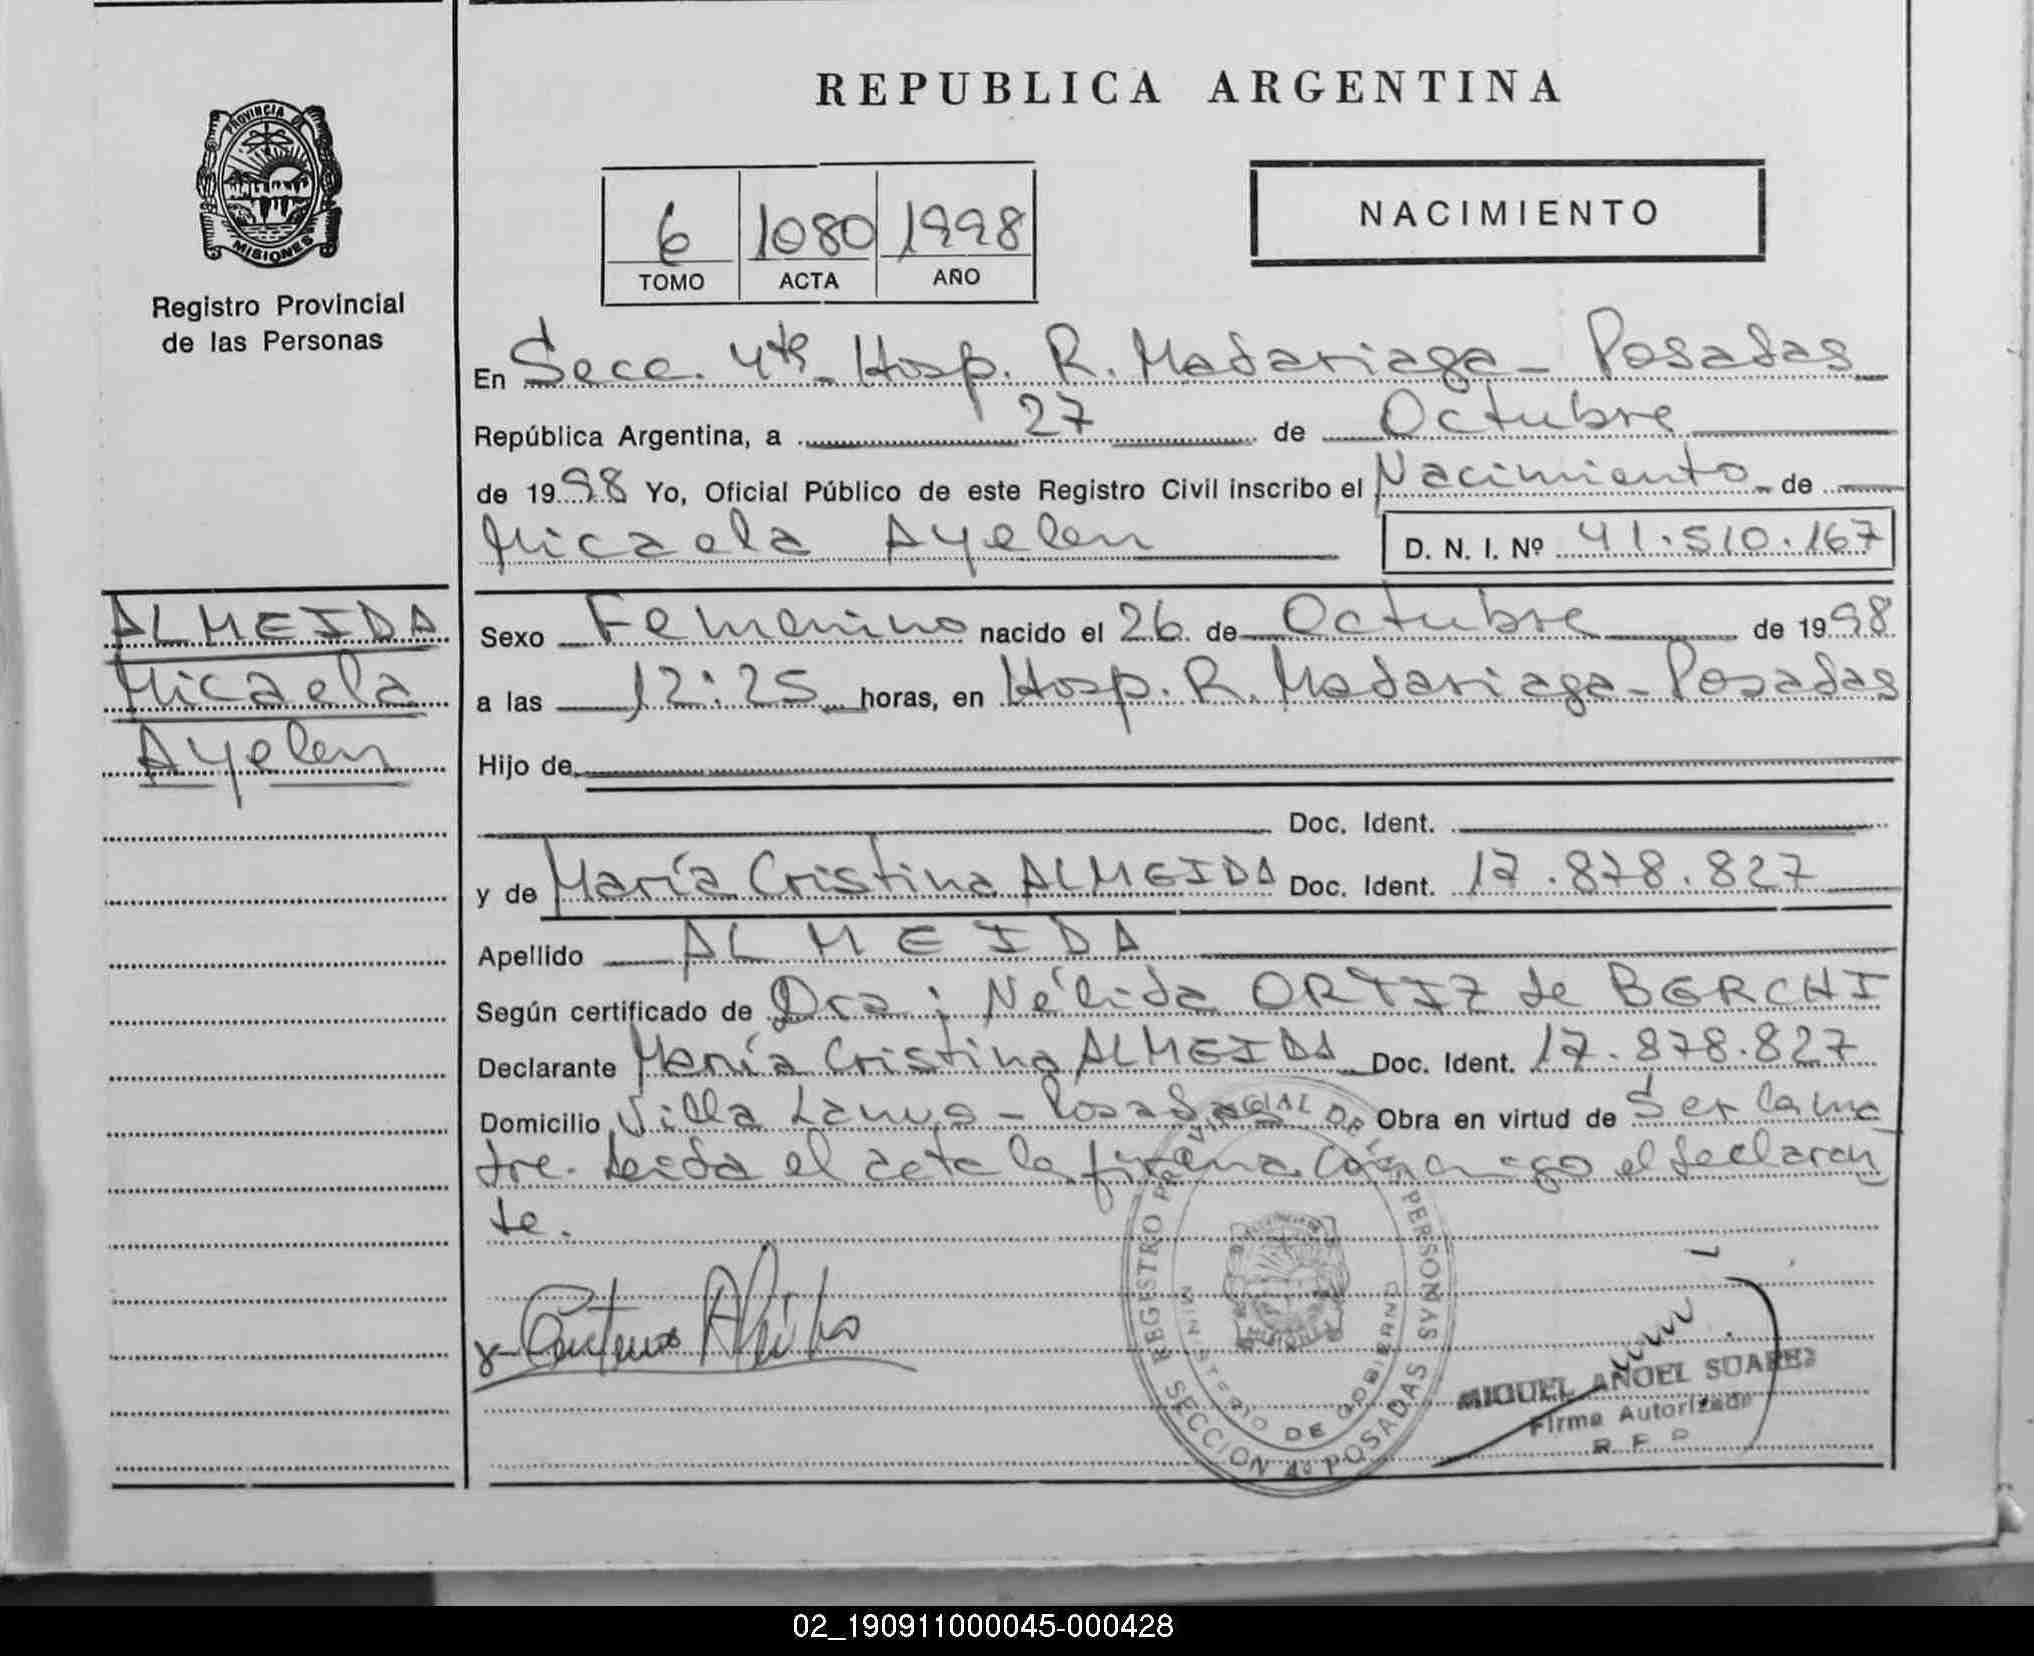 REPUBLICA ARGENTINA
PROVINCIA DE
MISIONES
Registro Provincial
de las Personas
6 1080 1998
TOMO ACTA AÑO
NACIMIENTO
En Secc. 4ta Hosp. R. Madariaga - Posadas
República Argentina, a 27 de Octubre
de 1998 Yo, Oficial Público de este Registro Civil inscribo el Nacimiento de
Micaela Ayelen D. N. I. Nº 41.510.167
ALMEIDA
Micaela
Ayelen
Sexo Femenino nacido el 26 de Octubre de 1998
a las 12:25 horas, en Hosp. R. Madariaga - Posadas
Hijo de
Doc. Ident.
y de María Cristina ALMEIDA Doc. Ident. 17.878.827
Apellido ALMEIDA
Según certificado de Dra; Nélida ORTIZ de BERCHI
Declarante María Cristina ALMEIDA Doc. Ident. 17.878.827
Domicilio Villa Lanus - Posadas Obra en virtud de Ser la ma
dre. Leida el acta la firma conmigo el declaran
te.
REGISTRO PROVINCIAL DE LAS PERSONAS
MINISTERIO DE GOBIERNO
SECCION 4º POSADAS
MIGUEL ANGEL SUAREZ
Firma Autorizada
R. P. P.
02_190911000045-000428